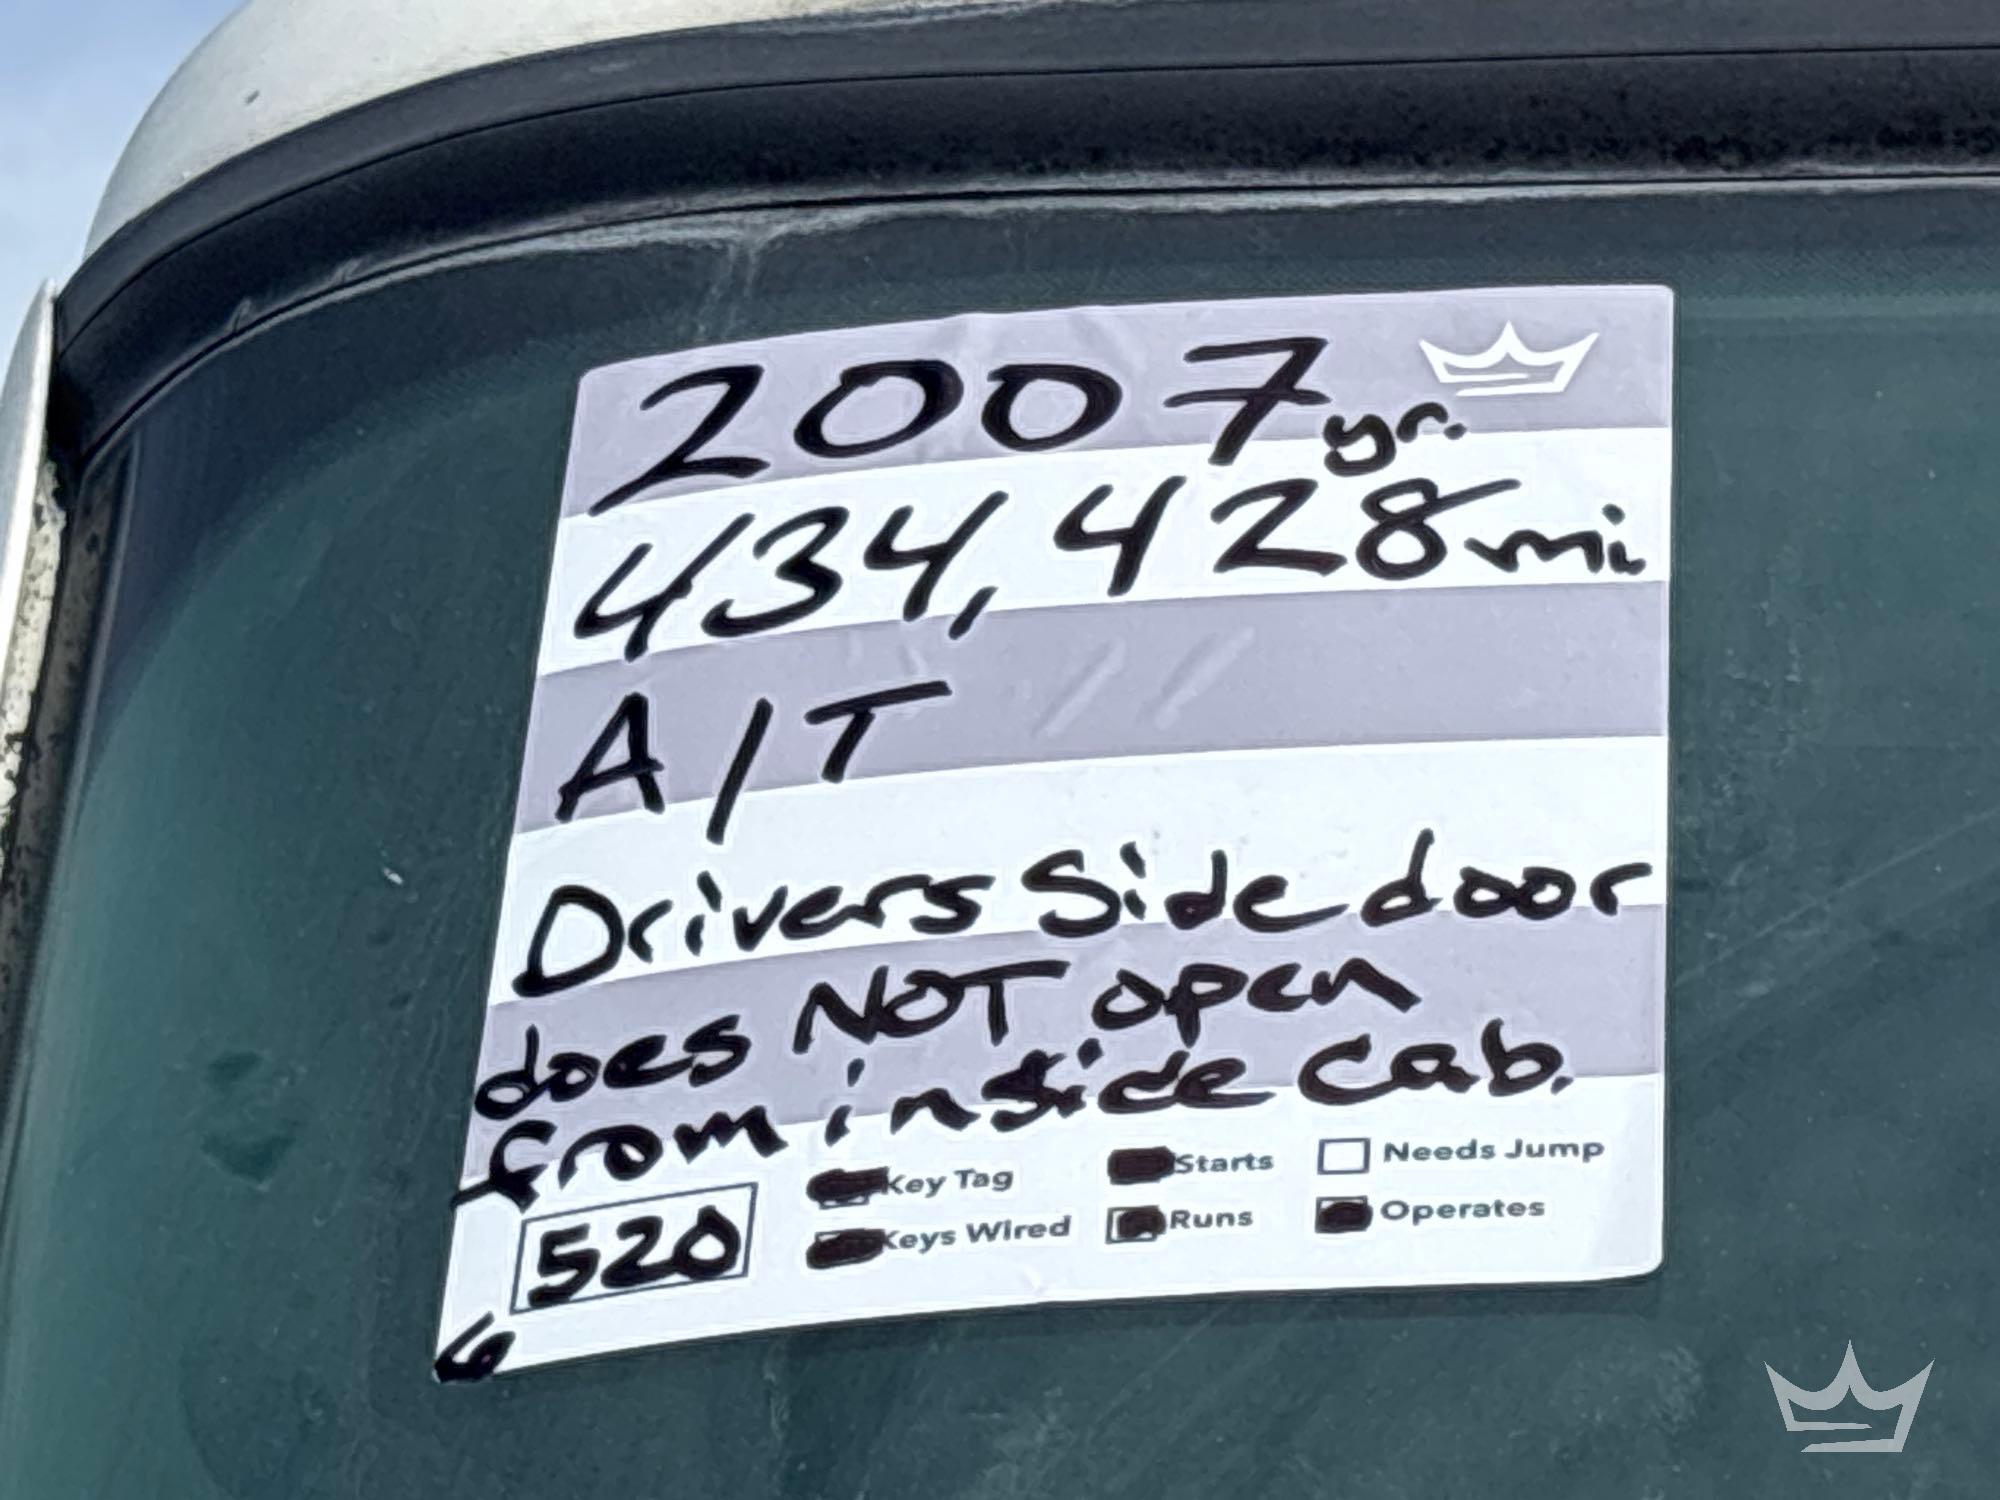 2007yr.
434,428mi
A/T
Drivers Side door
does NOT open
from inside cab.
Key Tag
Starts
Needs Jump
520
Keys Wired
Runs
Operates
6